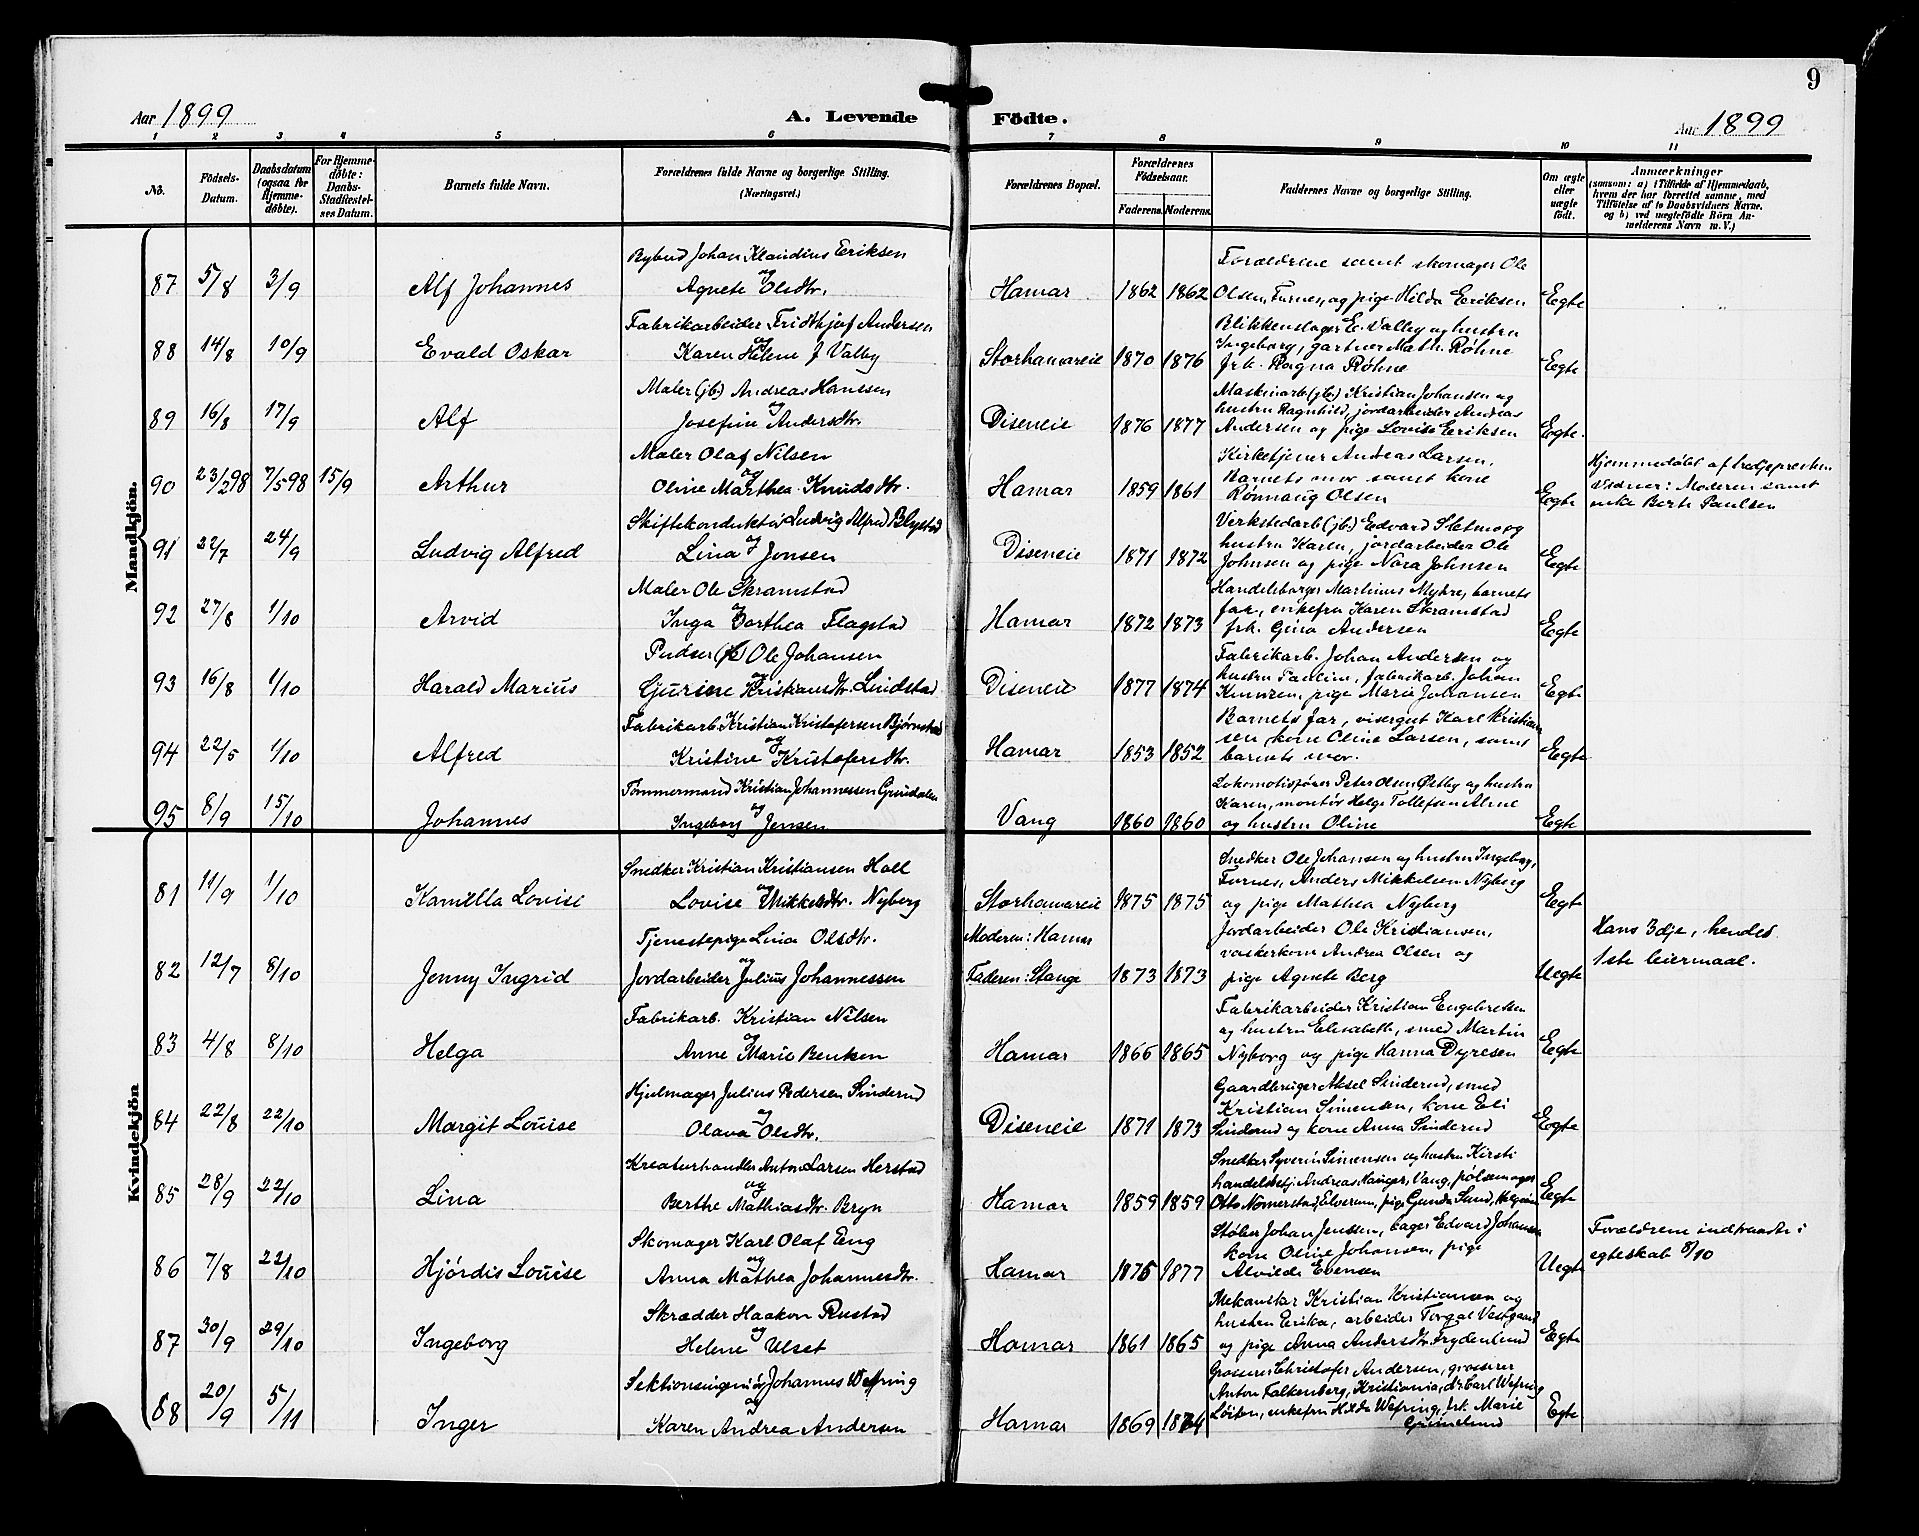 9
Aar 1899 A. Levende Födte. Aar 1899
1 2 3 4 5 6 7 8 9 10 11
No. Födsels-Datum. Daabsdatum (ogsaa for Hjemme-döbte). For Hjemme-döbte: Daabs-Stadfæstel-ses Datum. Barnets fulde Navn. Forældrenes fulde Navne og borgerlige Stilling. (Næringsvei.) Forældrenes Bopæl. Forældrenes Födselsaar. Faderens. Moderens. Faddernes Navne og borgerlige Stilling. Om ægte eller uægte födt. Anmærkninger (saasom: a) i Tilfælde af Hjemmedaab, hvem der har forrettet samme, med Tilföielse af to Daabsvidners Navne, og b) ved uægtefödte Börn An-melderens Navn m. V.)
Mandkjön.
Bybud Johan Klaudius Eriksen
Forældrene samt skomager Ole
87 5/8 3/9 Alf Johannes og Agnete Olsdtr. Hamar 1862 1862 Olsen, Furnes, og pige Hilda Eriksen Egte
Fabrikarbeider Fridthjof Andersen
Blikkenslager E. Valby og hustru
88 14/8 10/9 Evald Oskar og Karen Helene f Valby Storhamareie 1870 1876 Ingeborg, gartner Math. Røhne
frk. Ragna Røhne Egte
Maler (jb) Andreas Hanssen
Maskinarb (jb) Kristian Johansen og
hustru Ragnhild, jordarbeider Andreas
89 16/8 17/9 Alf og Josefine Andersdtr. Diseneie 1876 1877 Andersen og pige Lovise Eriksen Egte.
Maler Olaf Nilsen
Kirketjener Andreas Larsen,
Hjemmedøbt af tredjepresten.
90 23/2 98 7/5 98 15/9 Arthur og Oline Marthea Knudsdtr. Hamar 1859 1861 Barnets mor samt kone
Rønnaug Olsen Egte Vidner: Moderen samt
enke Berte Paulsen
Skiftekonduktør Ludvig Alfred Blystad
Verkstedarb (jb) Edvard Sletmo og
hustru Karen, jordarbeider Ole
91 22/7 24/9 Ludvig Alfred og Lina Jonsen Diseneie 1871 1872 Johnsen og pige Nora Johnsen Egte
Maler Ole Skramstad
Handelsborger Martinus Myhre, barnets
far, enkefru Karen Skramstad
92 27/8 1/10 Arvid og Inga Dorthea Flagstad Hamar 1872 1873 frk. Gina Andersen Egte
Pudser (jb) Ole Johansen
Fabrikarb. Johan Andersen og
93 16/8 1/10 Harald Marius og Gurine Kristiansdtr. Lindstad Diseneie 1877 1874 hustru Paulin, fabrikarb. Johan
pige Marie Johansen Egte
Fabrikarb. Kristian Kristofersen Bjørnstad
Barnets far, visergut Karl Kristian
94 22/5 1/10 Alfred og Kristine Kristofersdtr. Hamar 1853 1852 sen, kone Oline Larsen, samt
barnets mor. Egte
Tømmermand Kristian Johannessen Grundalen
Lokomotivfører Peter Olsen Østby og hustru
Karen, montør Helge Tollefsen Alme
95 8/9 15/10 Johannes og Ingeborg Jensen Vang 1860 1860 og hustru Oline Egte
Kvindekjön
Snedker Kristian Kristiansen Hall
Snedker Ole Johansen og hustru Ingeborg,
Furnes, Anders Mikkelsen Nyberg
81 11/9 1/10 Kamilla Lovise og Lovise Mikkelsdtr. Nyberg Storhamareie 1875 1875 og pige Mathea Nyberg Egte
Tjenestepige Lina Olsdtr. Moderen: Hamar
Jordarbeider Ole Kristiansen,
Hans 3dje, hendes
vaskerkone Andrea Olsen og
1ste leiermaal.
82 12/7 8/10 Jenny Ingrid og Jordarbeider Julius Johannessen Faderen: Stange 1873 1873 pige Agnete Berg Uegte
Fabrikarb. Kristian Nilsen
Fabrikarbeider Kristian Engebretsen
og hustru Elisabeth, smed Martin
83 4/8 8/10 Helga og Anne Marie Benken Hamar 1866 1865 Nyborg og pige Hanna Dyresen Egte
Hjulmager Julius Pedersen Sinderud
Gaardbruger Aksel Sinderud, smed
Kristian Simensen, kone Eli
84 22/8 22/10 Margit Louise og Olava Olsdtr. Diseneie 1871 1873 Sinderud og kone Anna Sinderud Egte
Kreaturhandler Anton Larsen Herstad
Snedker Syverin Simensen og hustru Kirsti
handelsbetj Andreas Hanger, Vang, pølsemager
85 28/9 22/10 Lina og Berthe Mathiasdtr. Bryn Hamar 1859 1859 Otto Nomerstad, Elverum, pige Gunda Sund, Helgøen Egte
Skomager Karl Olaf Eng
Støber Johan Jenssen, bager Edvard Johansen
Forældrene indtraadte i
kone Oline Johansen, pige
egteskab 8/10
86 7/8 22/10 Hjørdis Louise og Anna Mathea Johannesdtr. Hamar 1875 1877 Alvilde Evensen Uegte
Skrædder Haakon Rustad
Mekaniker Kristian Kristiansen og
hustru Erika, arbeider Torgal Vestgaard
87 30/9 29/10 Ingeborg og Helene Ulset Hamar 1861 1865 og pige Anna Andersdtr. Frydenlund Egte
Sektionsingeniør Johannes Wefring
Grosserer Christofer Andersen, grosserer
Anton Falkenberg, Kristiania, dr Carl Wefring
88 20/9 5/11 Inger og Karen Andrea Andersen Hamar 1869 1874 Løiten, enkefru Hilda Wefring, frk. Marie
Grimelund Egte